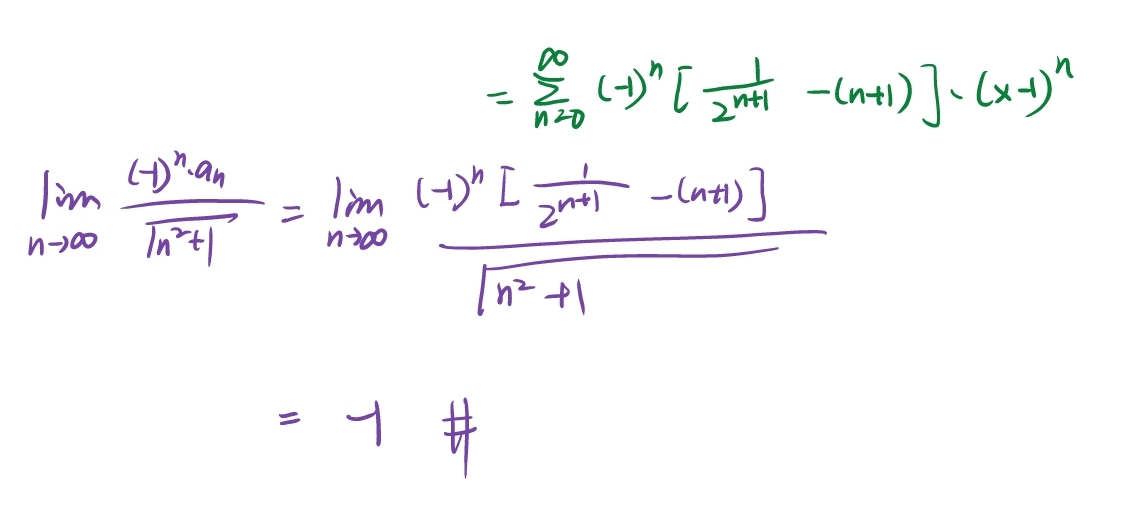 = \sum_{n=0}^{\infty} (-1)^n [ \frac{1}{2^{n+1}} - (n+1) ] \cdot (x-1)^n
\lim_{n \to \infty} \frac{(-1)^n \cdot a_n}{\sqrt{n^2+1}} = \lim_{n \to \infty} \frac{(-1)^n [ \frac{1}{2^{n+1}} - (n+1) ]}{\sqrt{n^2+1}}
= -1 #